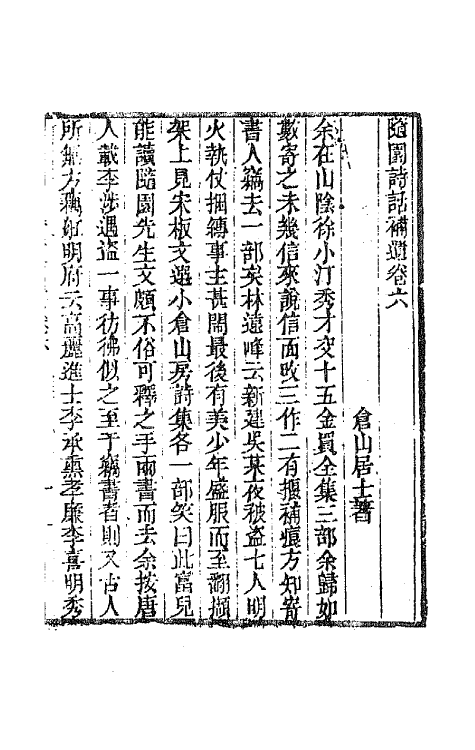 隨園詩話補遺卷六
倉山居士著
余在山陰徐小汀秀才交十五金買全集三部余歸如
數寄之未幾信來說信面改三作二有揠補痕方知寄
書人竊去一部矣林遠峰云新建吳某夜被盜七人明
火執仗捆縛事主甚閙最後有美少年盛服而至翻擷
架上見宋板文選小倉山房詩集各一部笑曰此富兒
能讀隨園先生文頗不俗可釋之手兩書而去余按唐
人載李涉遇盜一事彷彿似之至于竊書者則又古人
所無方藕船明府云高麗進士李承熏孝廉李喜明秀